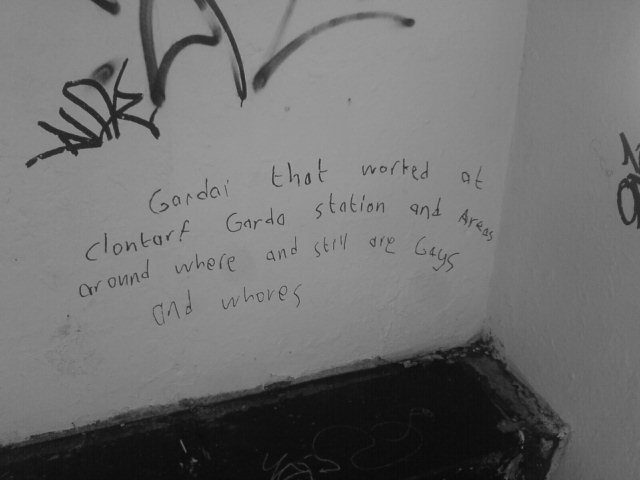 Gardai that worked at
Clontarf Garda station and Areas
around where and still are Gays
and whores